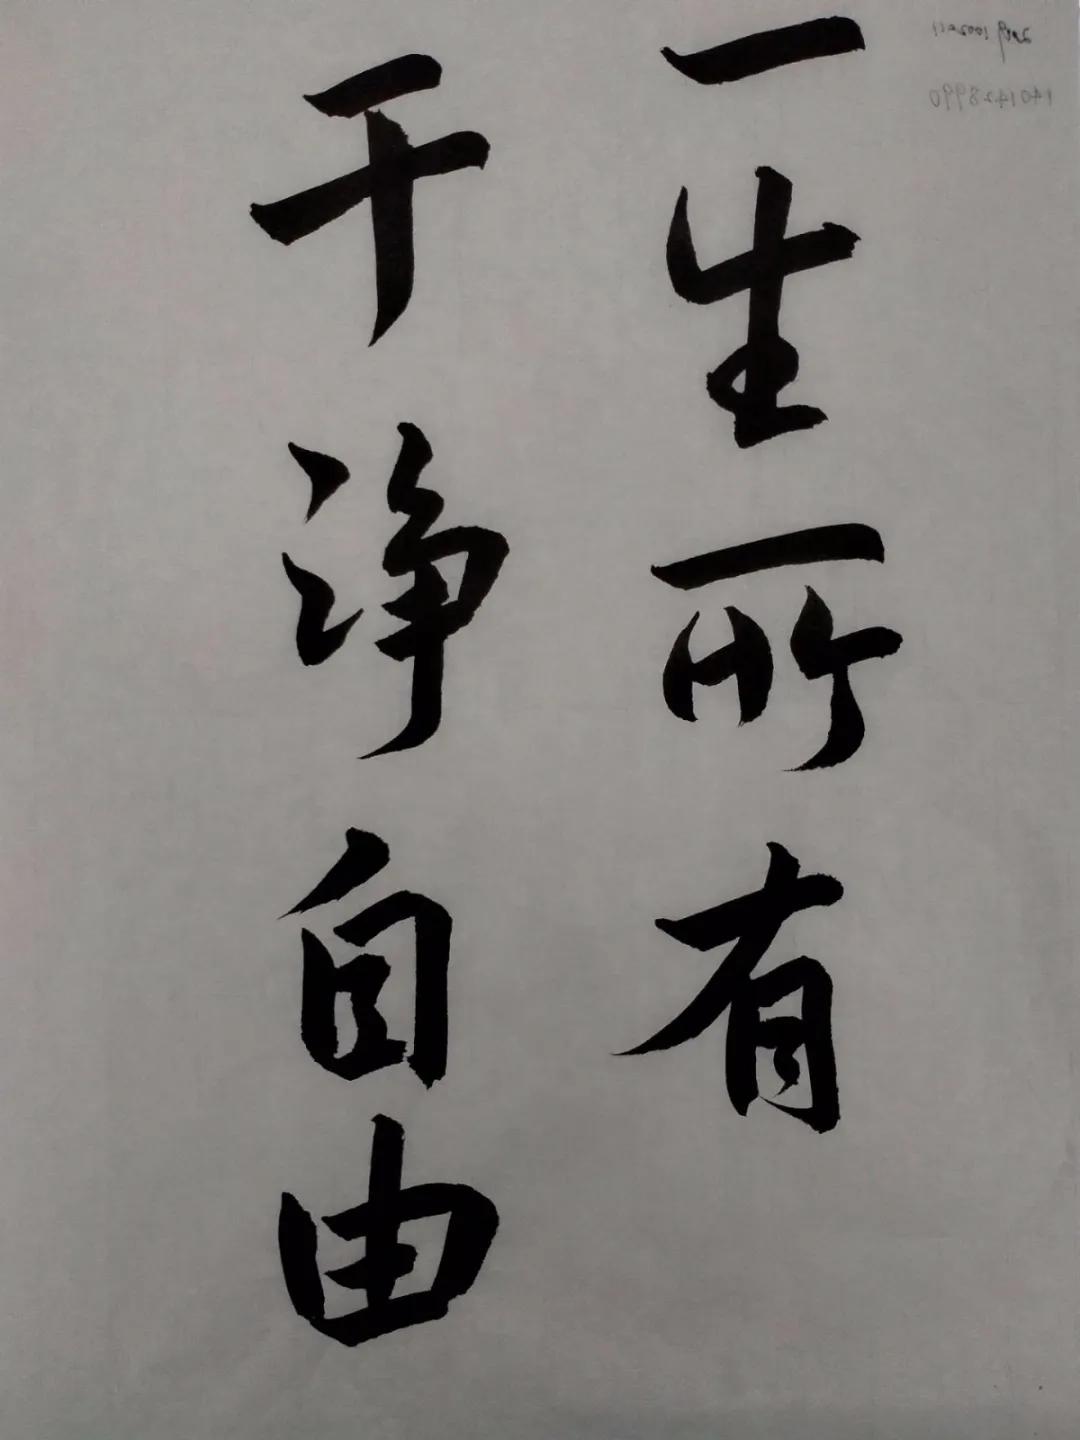 一生所有
干净自由
1401428990